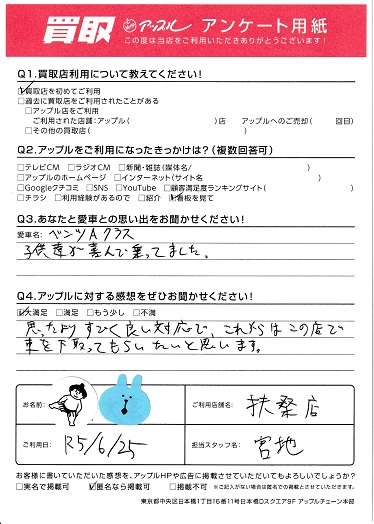 買取 アップル アンケート用紙
この度は当店をご利用いただきありがとうございます！
Q1.買取店利用について教えてください！
☑買取店を初めてご利用
□過去に買取店をご利用されたことがある
□アップル店をご利用
ご利用された店舗：アップル（ ）店 アップルへのご売却（ 回目）
□その他の買取店（ ）
Q2.アップルをご利用になったきっかけは？（複数回答可）
□テレビCM □ラジオCM □新聞・雑誌（媒体名/ ）
□アップルのホームページ □インターネット（サイト名 ）
□Googleクチコミ □SNS □YouTube □顧客満足度ランキングサイト（ ）
□チラシ □利用経験があるので □紹介 ☑看板を見て
Q3.あなたと愛車との思い出をお聞かせください！
愛車名：ベンツAクラス
子供達が喜んで乗ってました。
Q4.アップルに対する感想をぜひお聞かせください！
☑大満足 □満足 □もう少し □不満
思ったよりすごく良い対応で、これからはこの店で
車を下取ってもらいたいと思います。
お名前：
ご利用店舗名： 扶桑店
ご利用日： R5/6/25
担当スタッフ名： 宮地
お客様に書いていただいた感想を、アップルHPや広告に掲載させていただいてもよろしいでしょうか？
□実名で掲載可 ☑匿名なら掲載可 □掲載不可 ※ご記入がない場合は匿名での掲載とさせていただきます。
東京都中央区日本橋1丁目16番11号日本橋Dスクエア9F アップルチェーン本部